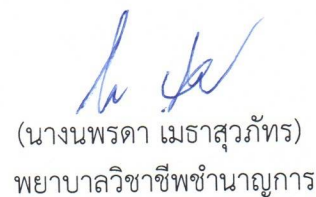 (นางนพรดา เมธาสุวภัทร)
พยาบาลวิชาชีพชำนาญการ